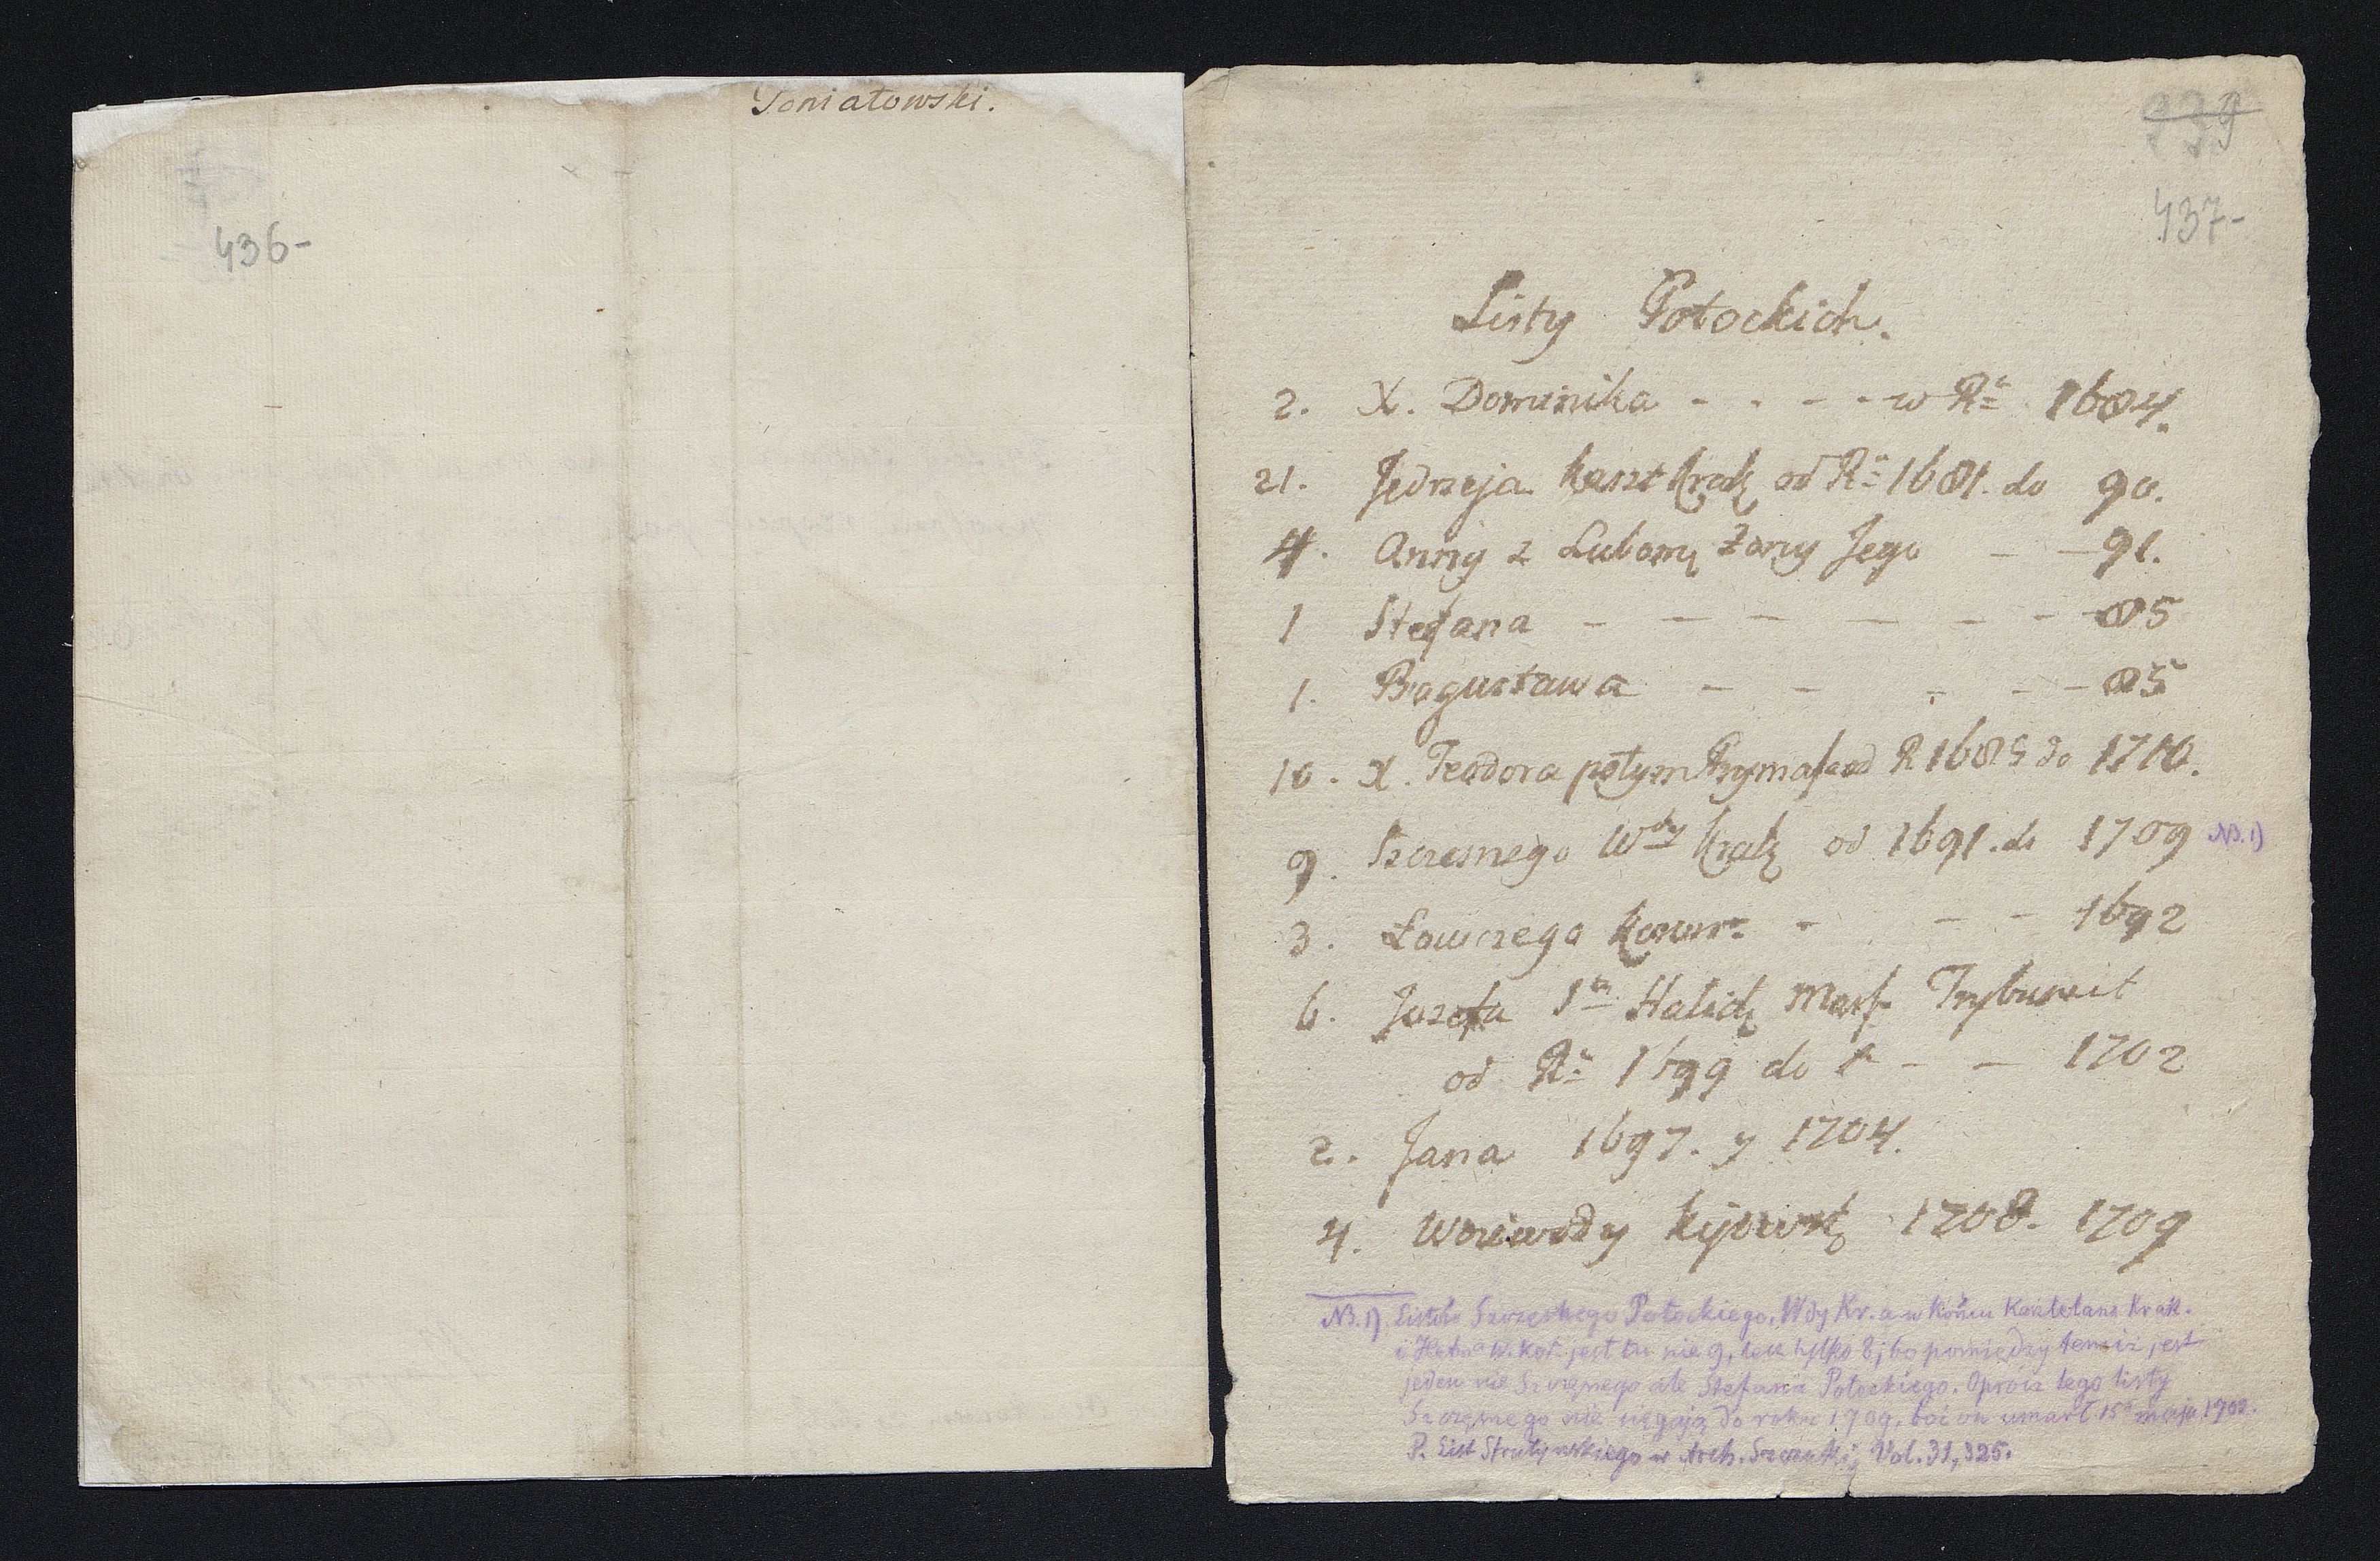 Poniatowski.
436-
339
437-
Listy Potockich.
2. X. Dominika - - - - w Ru 1684.
21. Jędrzeja kaszt krak od Ru 1681. do 90.
4. Anny z Lubom żony Jego - - 91.
1 Stefana - - - - - - 85
1. Bogusława - - - - - 85
10. X. Teodora potym Prymasa od R 1685 do 1710.
9. Szczesnego Wdy krak od 1691. do 1709 NB. 1)
3. Łowczego koron - - - 1692
6. Jozefa Sta Halick Marsz Trybu
od Ru 1699 do - - 1702
2. Jana 1697. y 1704.
4. Woiewody kijowsk 1708. 1709
NB. 1) Listów Szczęsnego Potockiego, Wdy Kr. a w końcu Kasztelana Krak.
i Hetma W. Kor. jest tu nie 9, lecz tylko 8; bo pomiędzy temiż jest
jeden nie Szczęsnego ale Stefana Potockiego. Oprócz tego listy
Szczęsnego nie sięgają do roku 1709, boć on umarł 15 maja 1702.
P. List Strutyńskiego w Arch. Szczuki, Vol. 31, 325.